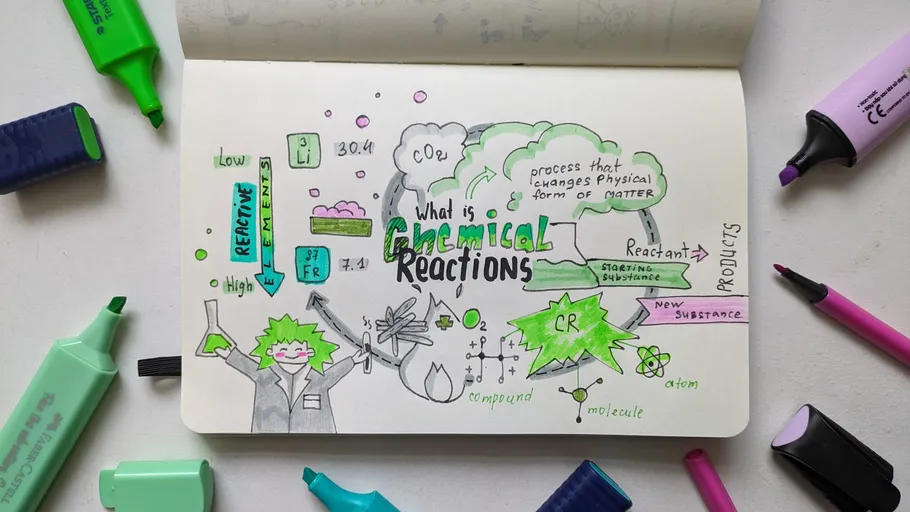 Low
REACTIVE
ELEMENTS
High
3
Li
30.4
87
FR
7.1
CO2
process that
changes Physical
form OF MATTER
What is
Chemical
Reactions
Reactant
PRODUCTS
STARTING
Substance
NEW
SUBSTANCE
CR
O2
compound
molecule
atom
CE
FABER-CASTELL